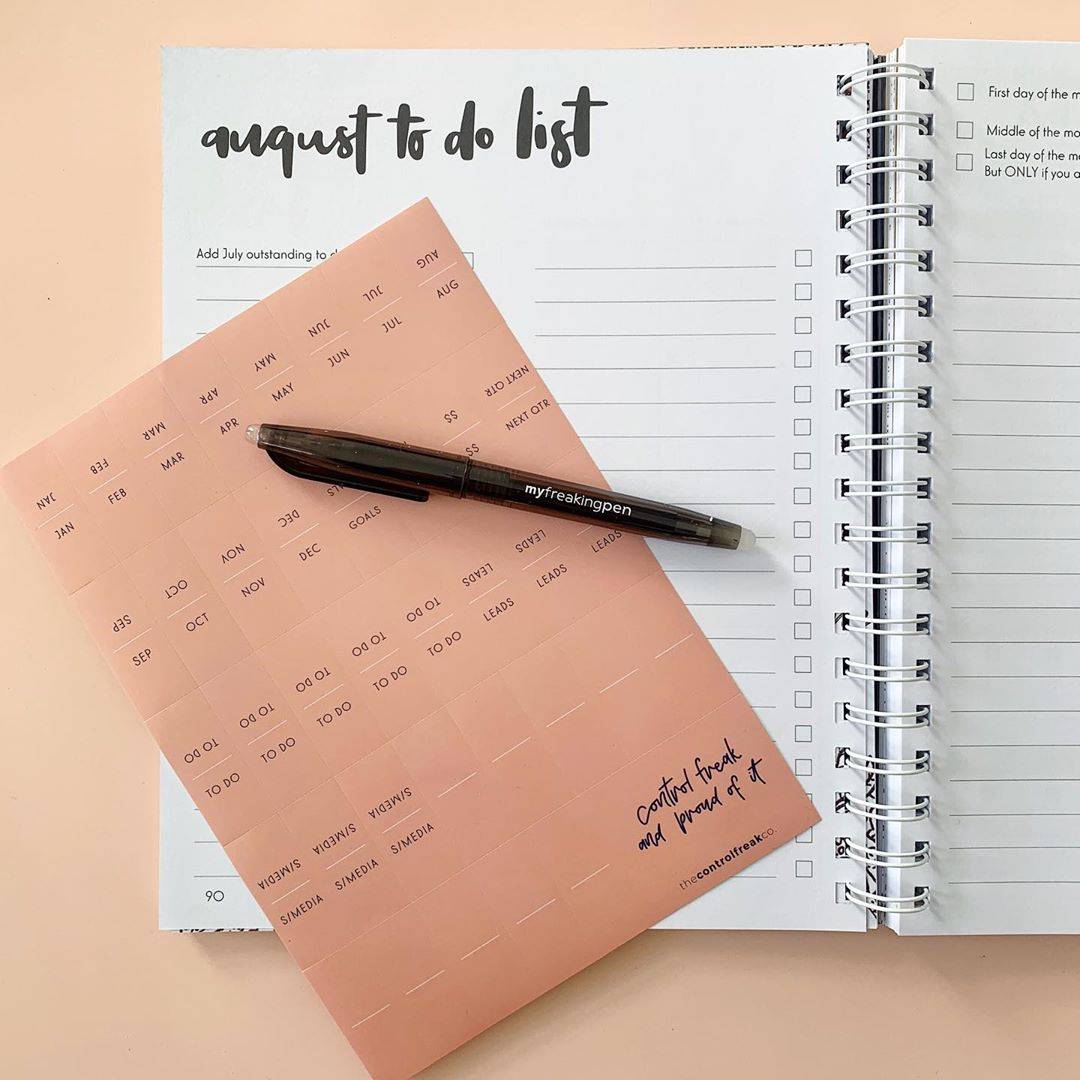 august to do list
Add July outstanding to
JAN FEB MAR APR MAY JUN JUL AUG
JAN FEB MAR APR MAY JUN JUL AUG
SEP OCT NOV DEC $$ NEXT QTR
SEP OCT NOV DEC GOALS $$ NEXT QTR
TO DO TO DO TO DO TO DO TO DO LEADS LEADS
TO DO TO DO TO DO TO DO TO DO LEADS LEADS LEADS
S/MEDIA S/MEDIA S/MEDIA
S/MEDIA S/MEDIA S/MEDIA
control freak
and proud of it
thecontrolfreakco.
myfreakingpen
90
First day of the
Middle of the
Last day of the
But ONLY if you